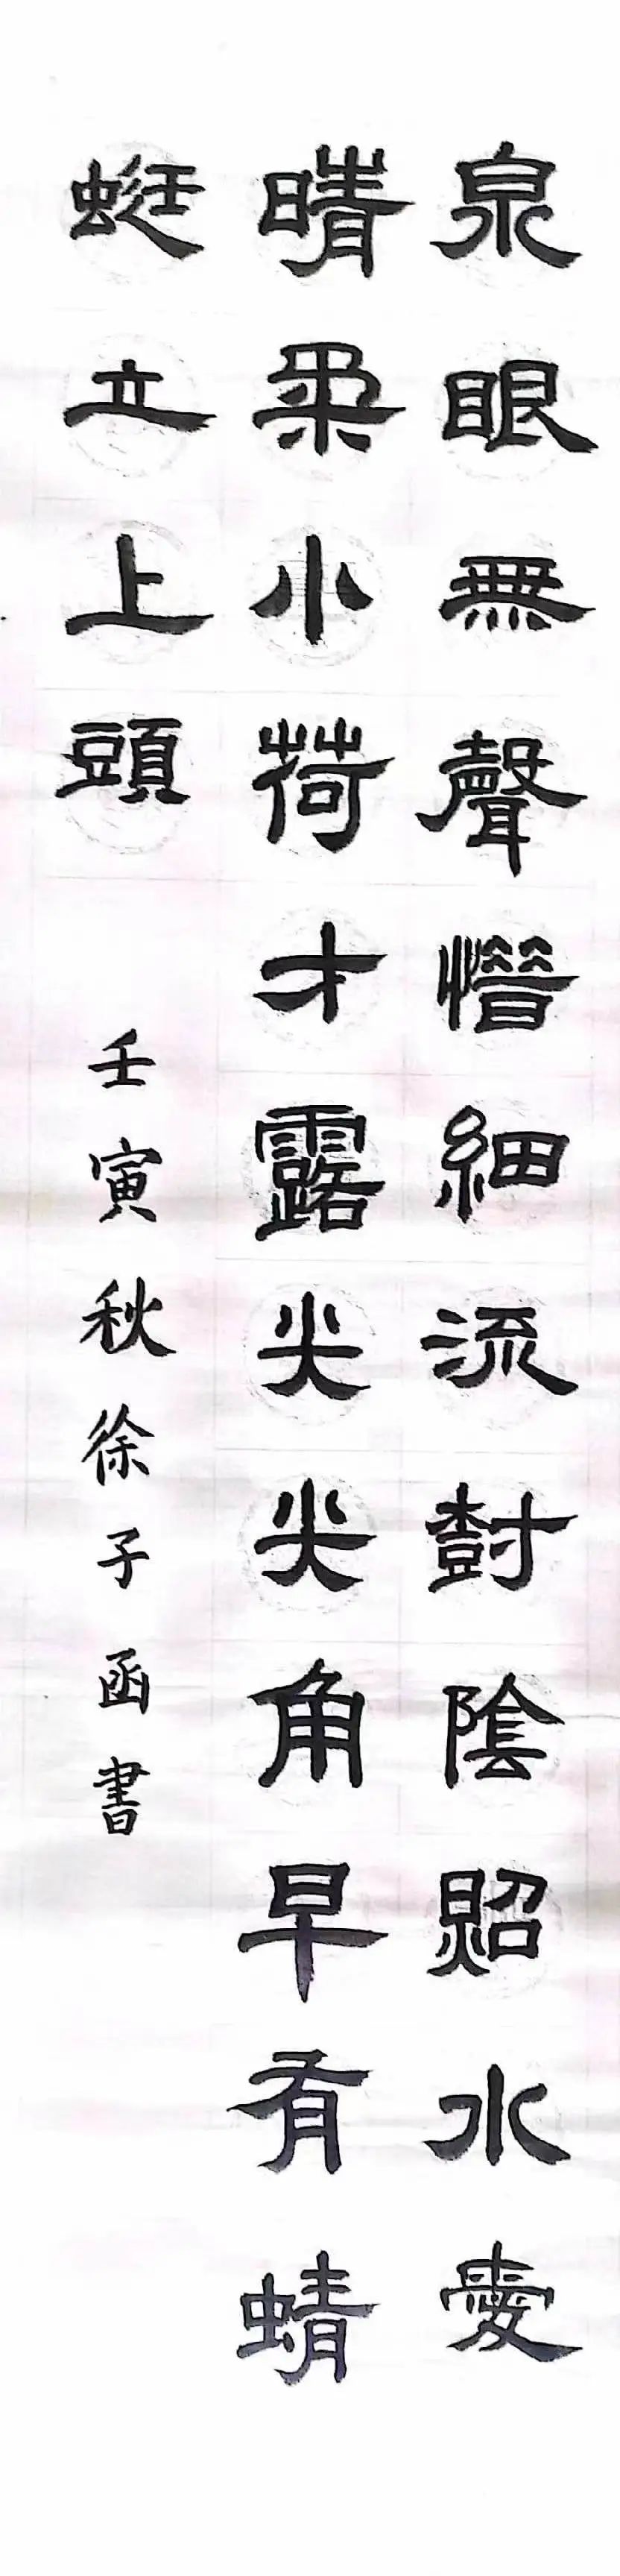 泉眼無聲惜細流樹陰照水愛
晴柔小荷才露尖尖角早有蜻
蜓立上頭
壬寅秋徐子函書